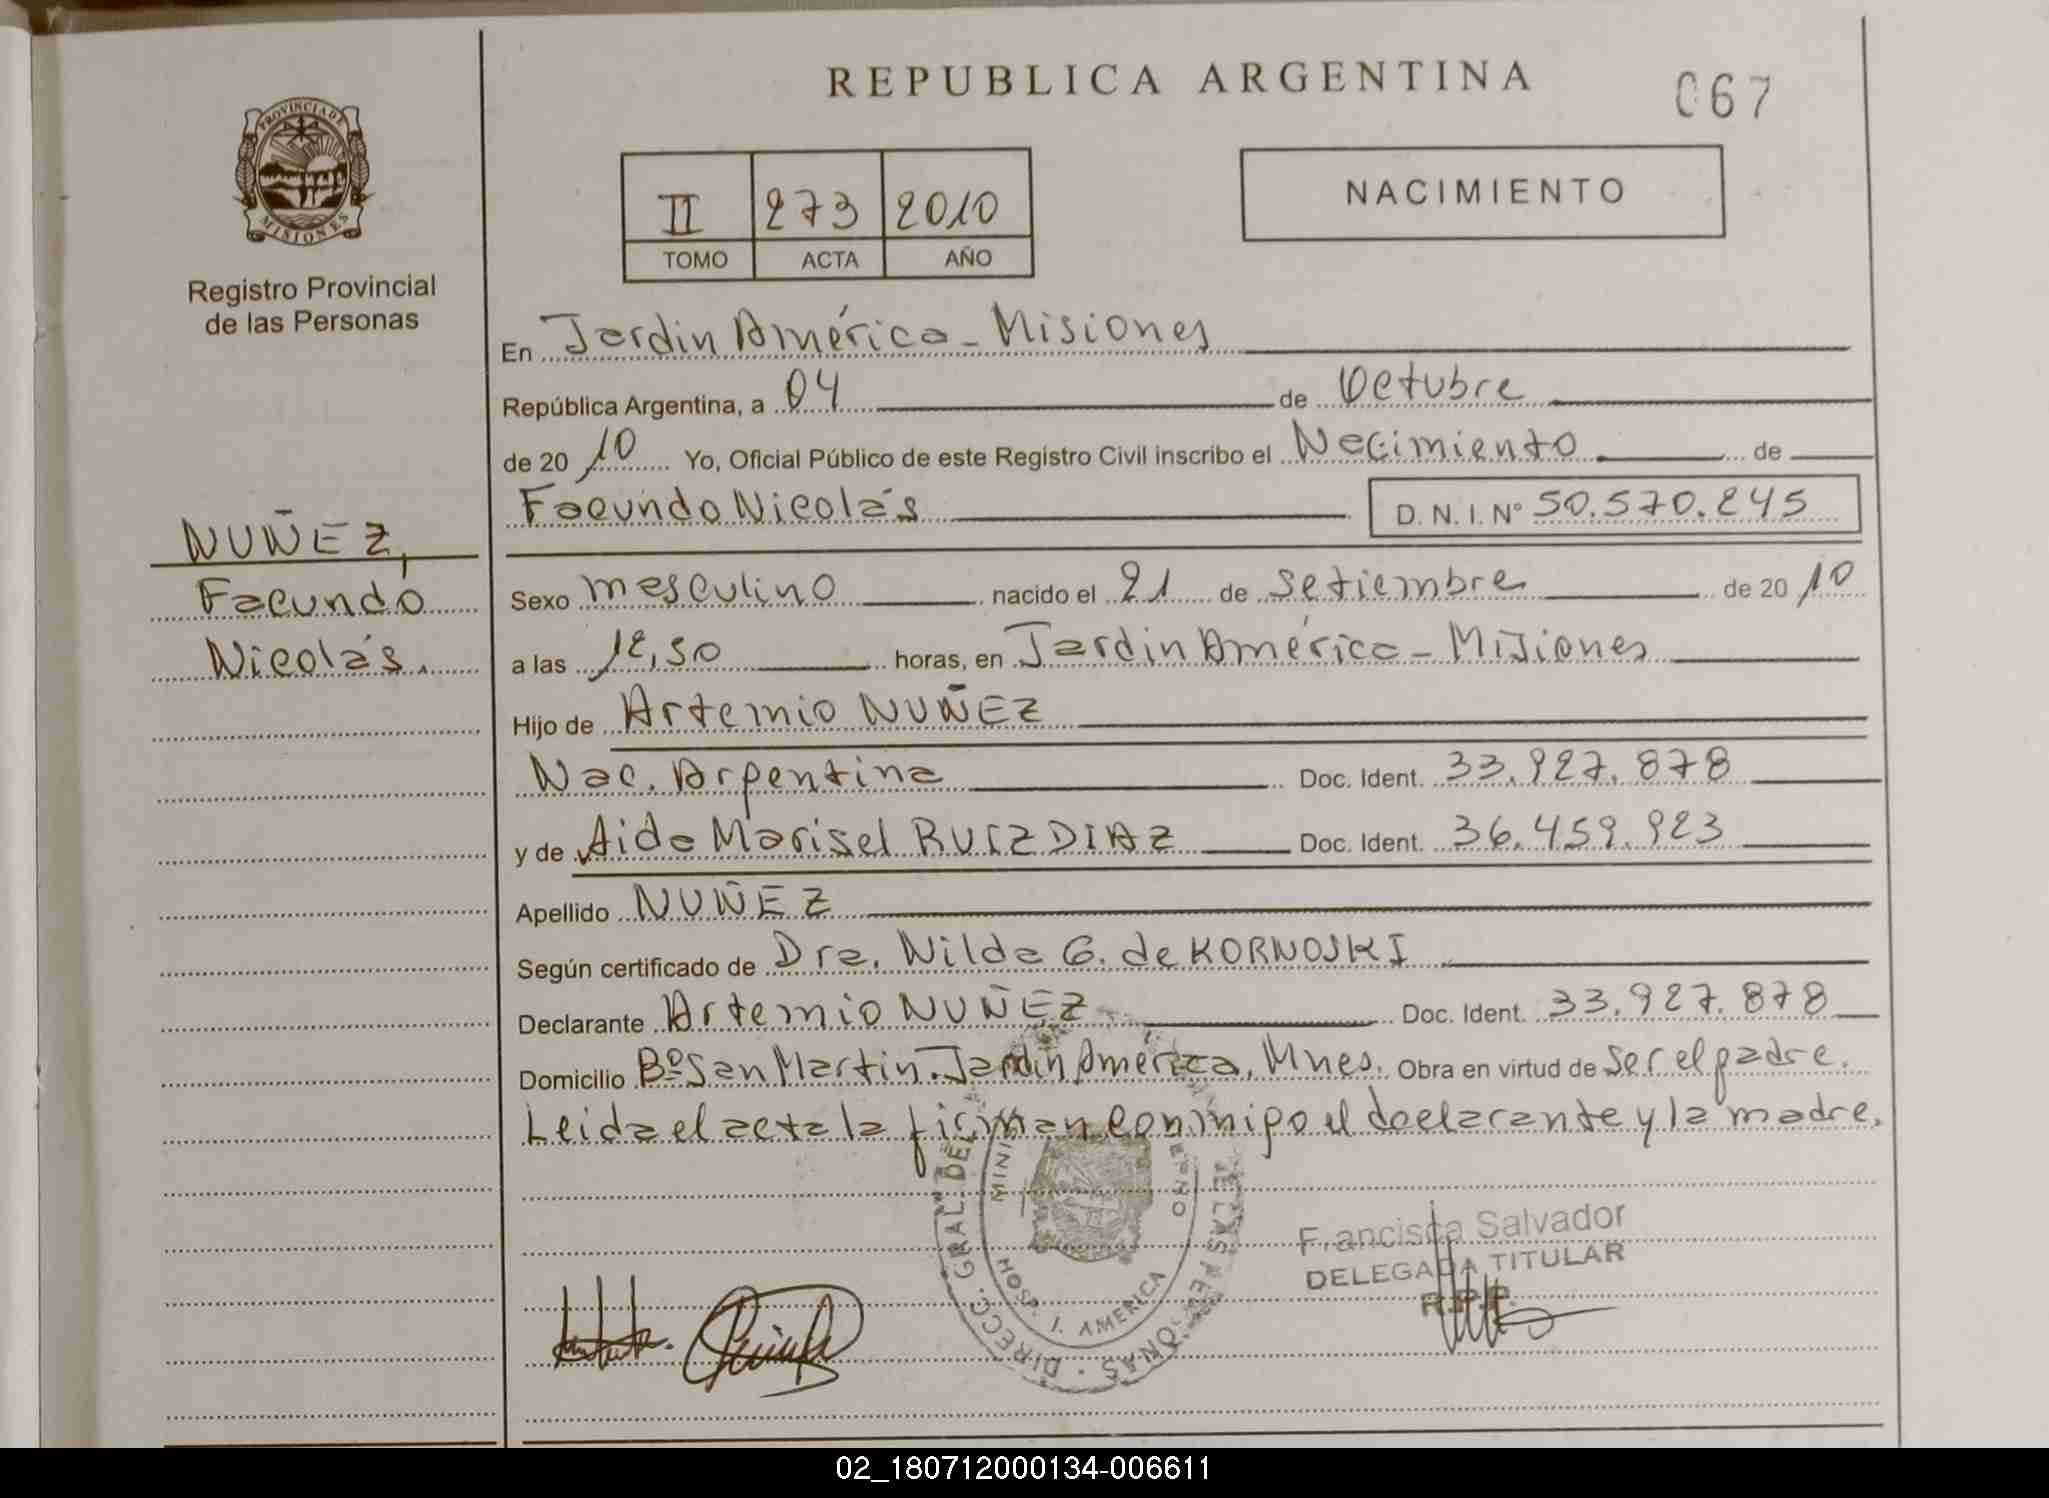 REPUBLICA ARGENTINA
067
PROVINCIA DE MISIONES
Registro Provincial
de las Personas
II 273 2010
TOMO ACTA AÑO
NACIMIENTO
En Jardin América - Misiones
República Argentina, a 04 de Octubre
de 20 10 Yo, Oficial Público de este Registro Civil inscribo el Nacimiento de
Facundo Nicolás D. N. I. Nº 50.570.245
NUÑEZ,
Facundo
Nicolás.
Sexo masculino nacido el 21 de setiembre de 20 10
a las 12,50 horas, en Jardin América - Misiones
Hijo de Artemio NUÑEZ
Nac. Argentina Doc. Ident. 33.927.878
y de Aida Marisel RUIZ DIAZ Doc. Ident. 36.459.923
Apellido NUÑEZ
Según certificado de Dra. Nilda G. de KORNOSKI
Declarante Artemio NUÑEZ Doc. Ident. 33.927.878
Domicilio Bº San Martin. Jardin América, Mnes. Obra en virtud de ser el padre.
Leida el acta la firman conmigo el declarante y la madre.
Francisca Salvador
DELEGADA TITULAR
R.P.P.
DIRECC. GRAL. DE LAS PERSONAS
HOSP. J. AMERICA
02_180712000134-006611